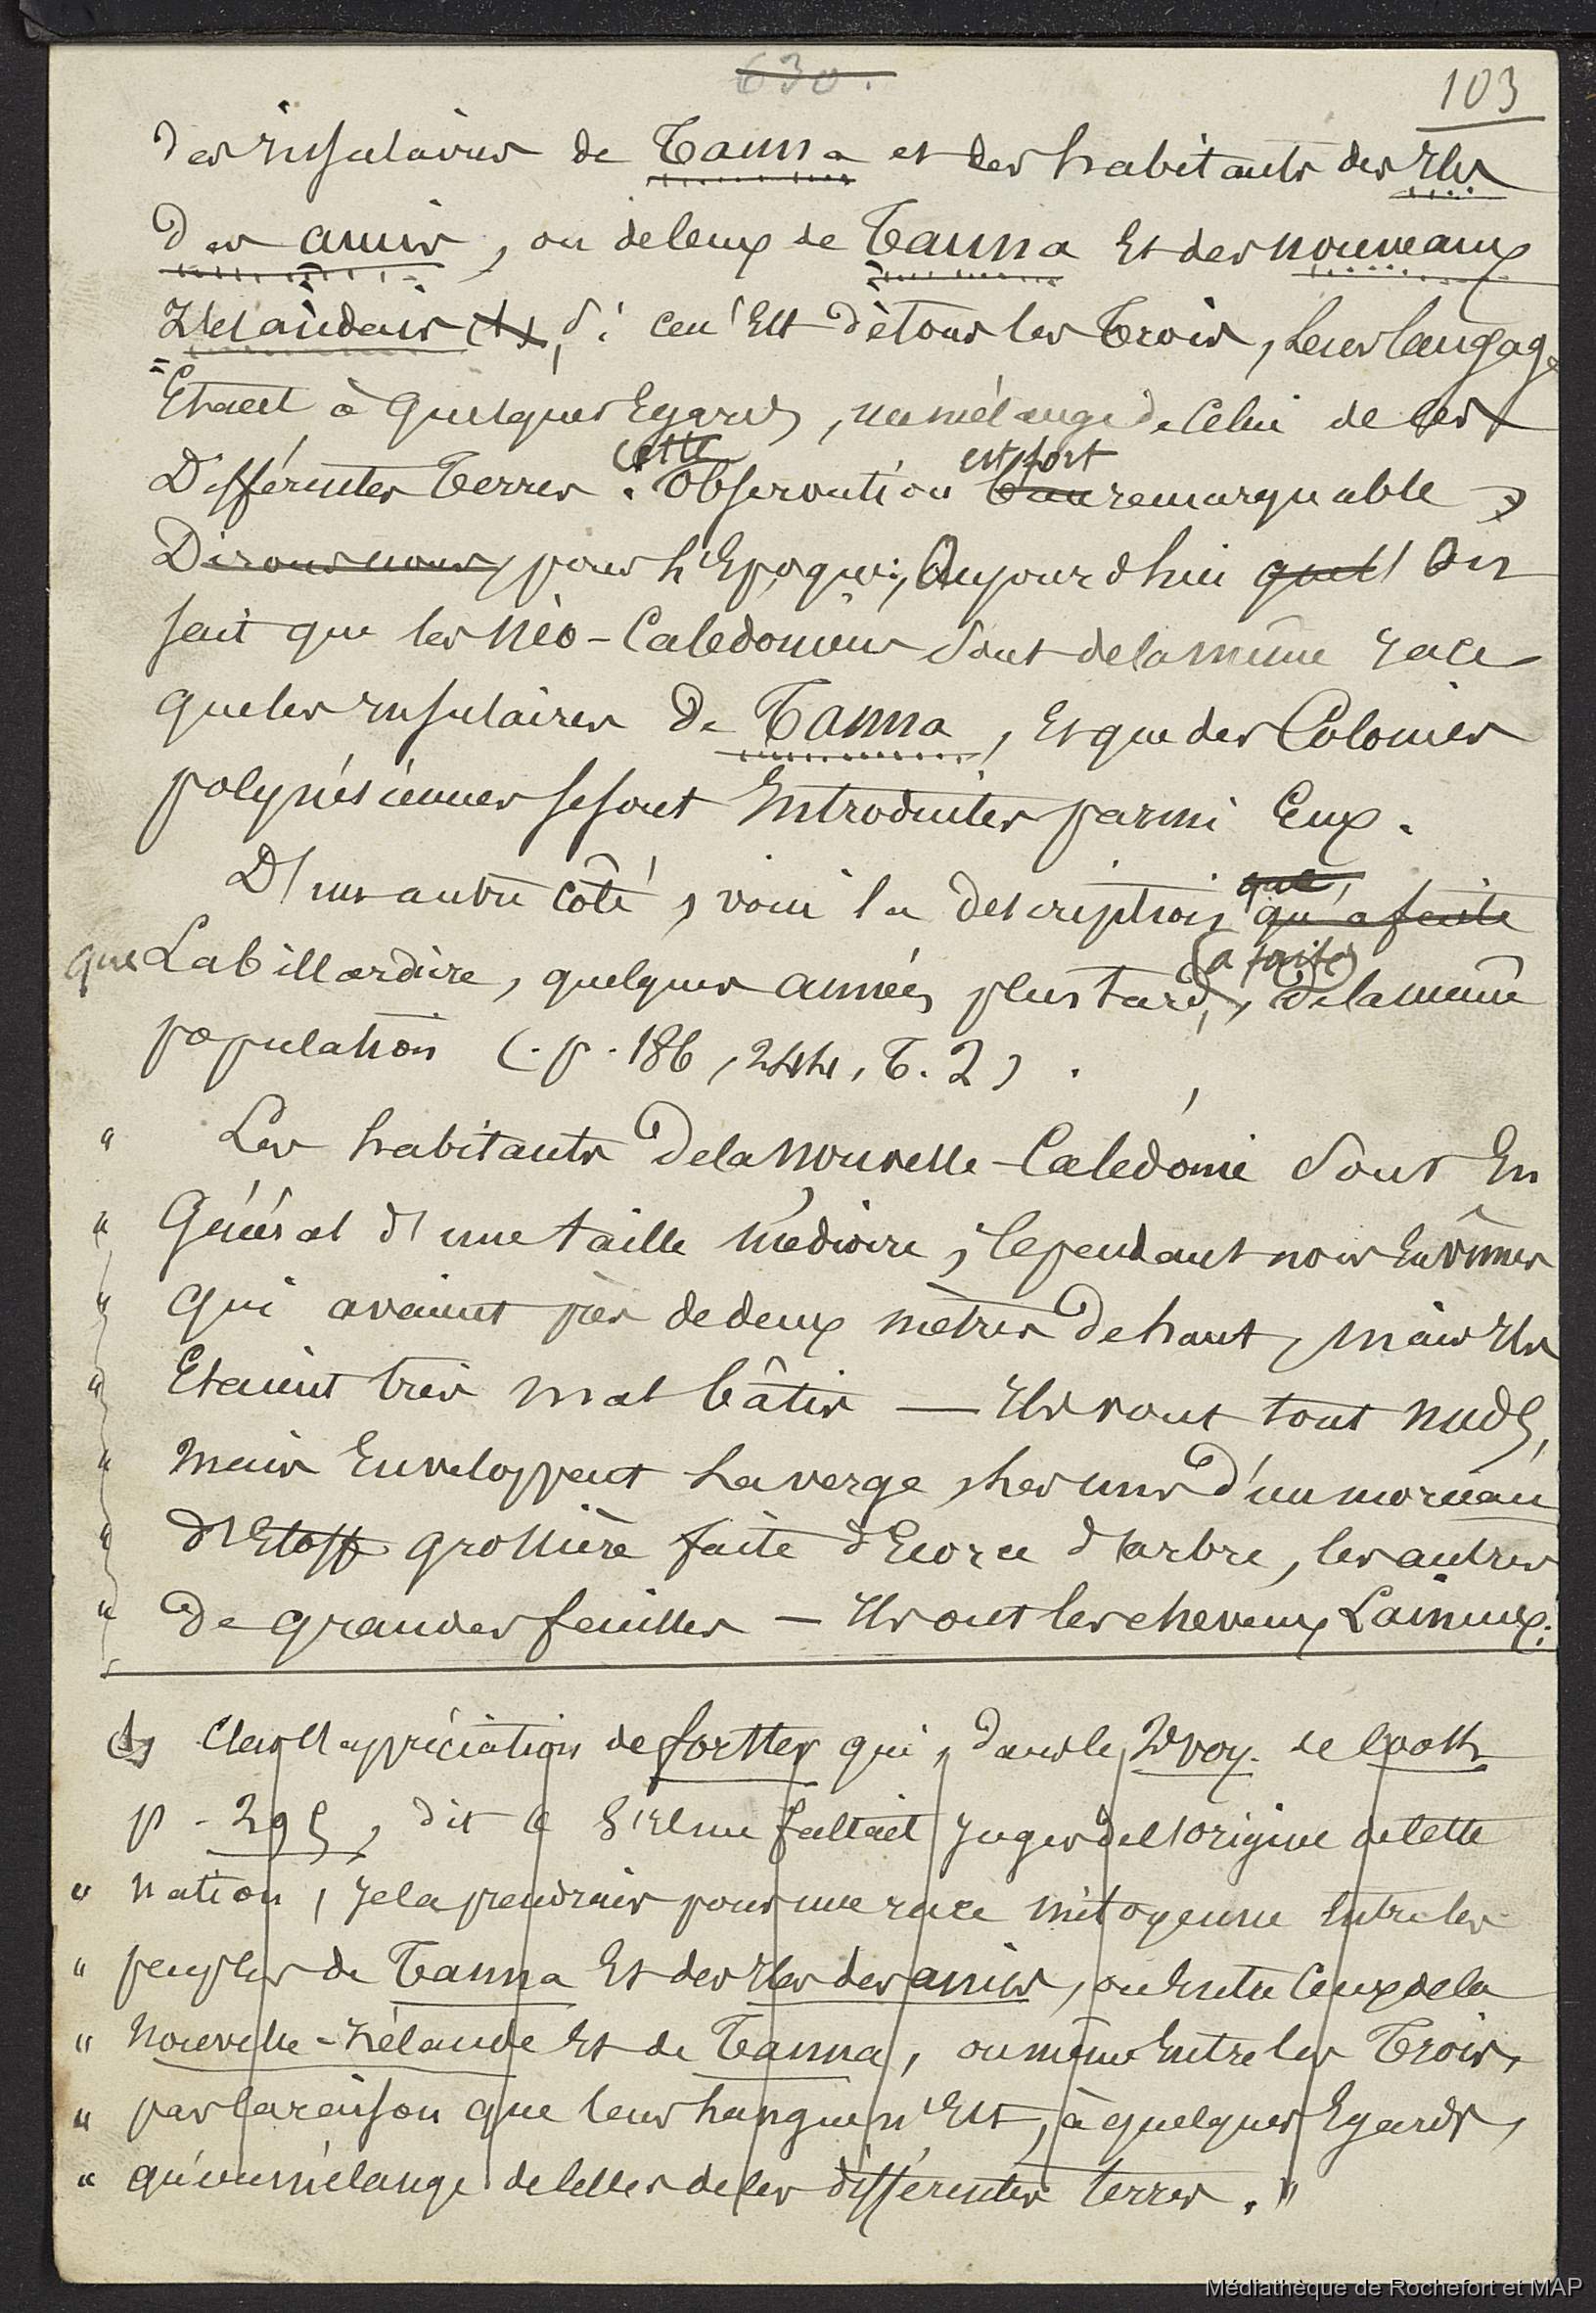 630.
103
des insulaires de Tanna et des habitants des Iles
des amis, ou de ceux de Tanna Et des nouveaux
Zélandais (1), Si ce n'Est de tous les Trois, Leur langage
Etant à quelques Egards, un mélange de Celui de ces
Différentes Terres. Cette Observation est fort remarquable,
Dirons nous, pour l'Epoque; Aujourdhui que l'On
sait que les Néo-Calédoniens sont de la même race
que les insulaires de Tanna, Et que des Colonies
polynésiennes se sont Introduites parmi Eux.
D'un autre côté, voici la description que, qu'a faite
que Labillardière, quelques années plus tard, (a faite) de la même
population (. p. 186, 244, T. 2).
" Les habitants de la Nouvelle-Calédonie sont En
" Général d'une taille médiocre, Cependant nous En vimes
" qui avaient près de deux mètres de haut, mais Ils
" Etaient très mal bâtis — Ils vont tout nuds,
" mais Enveloppent La verge, Les uns d'un morceau
" d'Etoffe grossière faite d'Ecorce d'arbre, les autres
" de grandes feuilles — Ils ont les cheveux Laineux;
(1) C'est l'appréciation de forster qui, dans le 2e voy. de Cook
p - 295, dit " S'Il me fallait Juger de l'origine de cette
" nation, Je la prendrais pour une race mitoyenne Entre les
" peuples de Tanna Et des Iles des amis, ou Entre Ceux de la
" Nouvelle-Zélande Et de Tanna, ou même Entre les Trois,
" par la raison que leur Langue n'Est, à quelques Egards,
" qu'un mélange de celles de ces différentes terres. "
Médiathèque de Rochefort et MAP